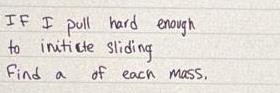 IF I pull hard enough
to initicte sliding
Find a of each mass.